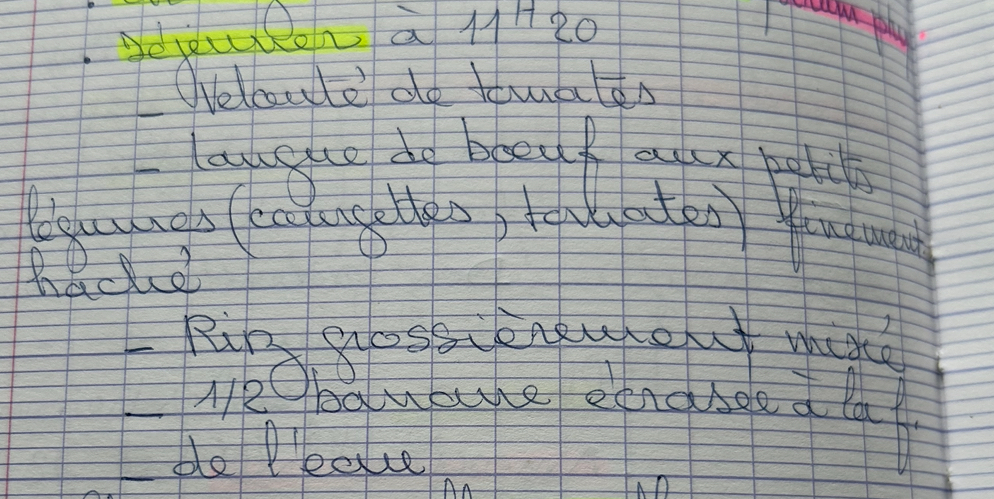 . déjeuner à 11H20
_ Velouté de tomates
_ langue de boeuf aux petits
légumes (courgettes, tomates) finement
haché
_ Riz grossièrement mixé
_ 1/2 banane écrasée à la f.
_ de l'eau